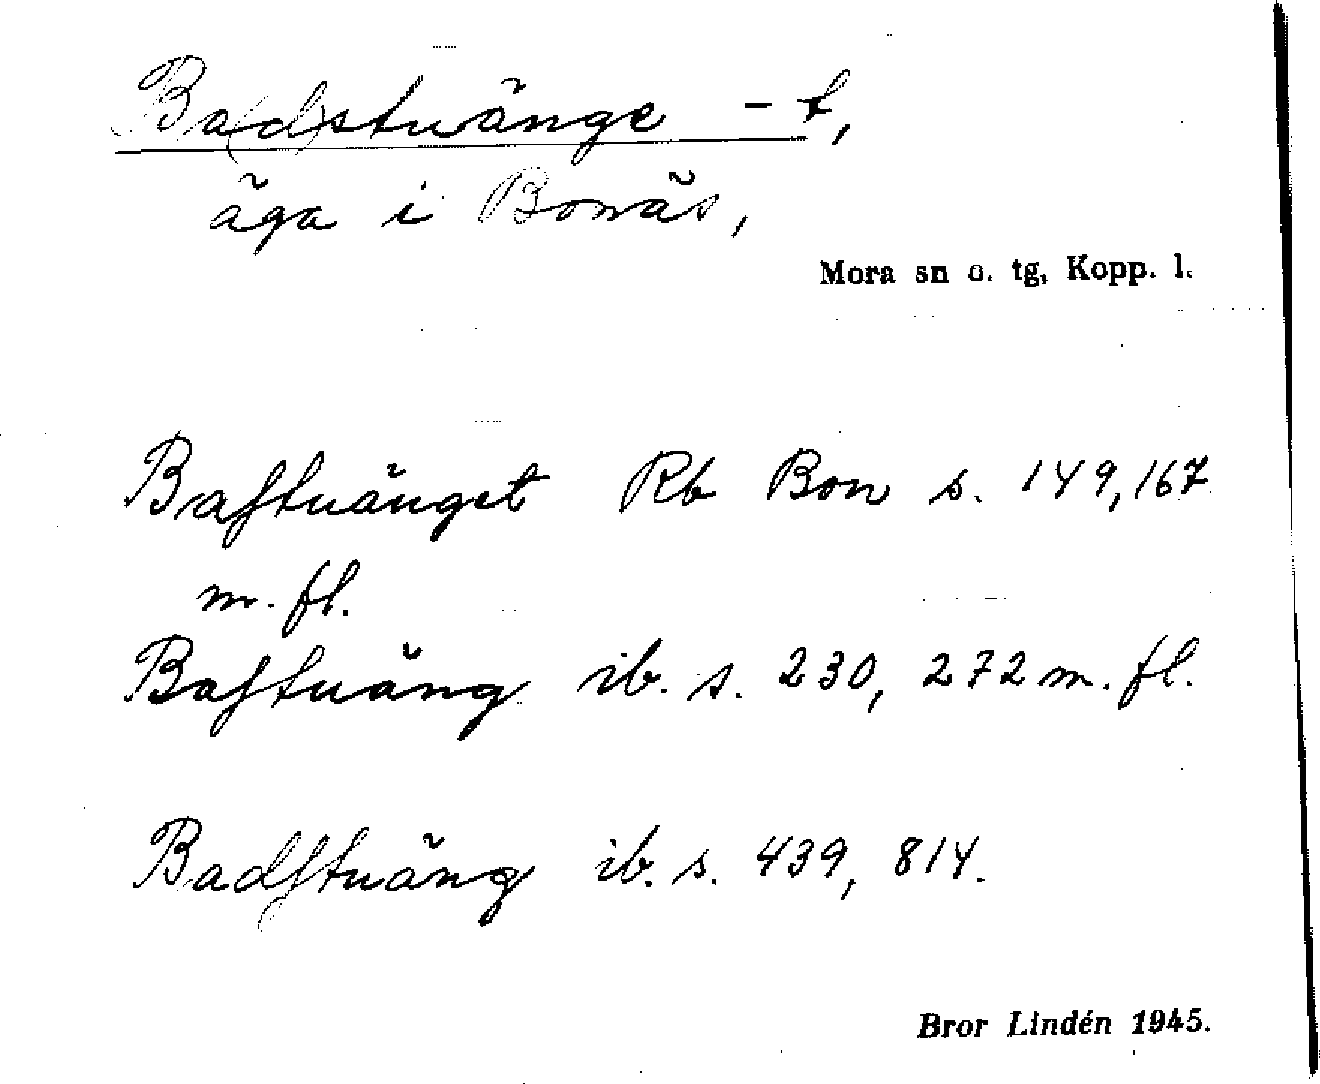 Ba(d)stuänge -t,
äga i Bonäs,
Mora sn o. tg, Kopp. l.
Baſtuänget Rb Bon s. 149, 167
m. fl.
Baſtuäng ib. s. 230, 272 m. fl.
Badſtuäng ib. s. 439, 814.
Bror Lindén 1945.